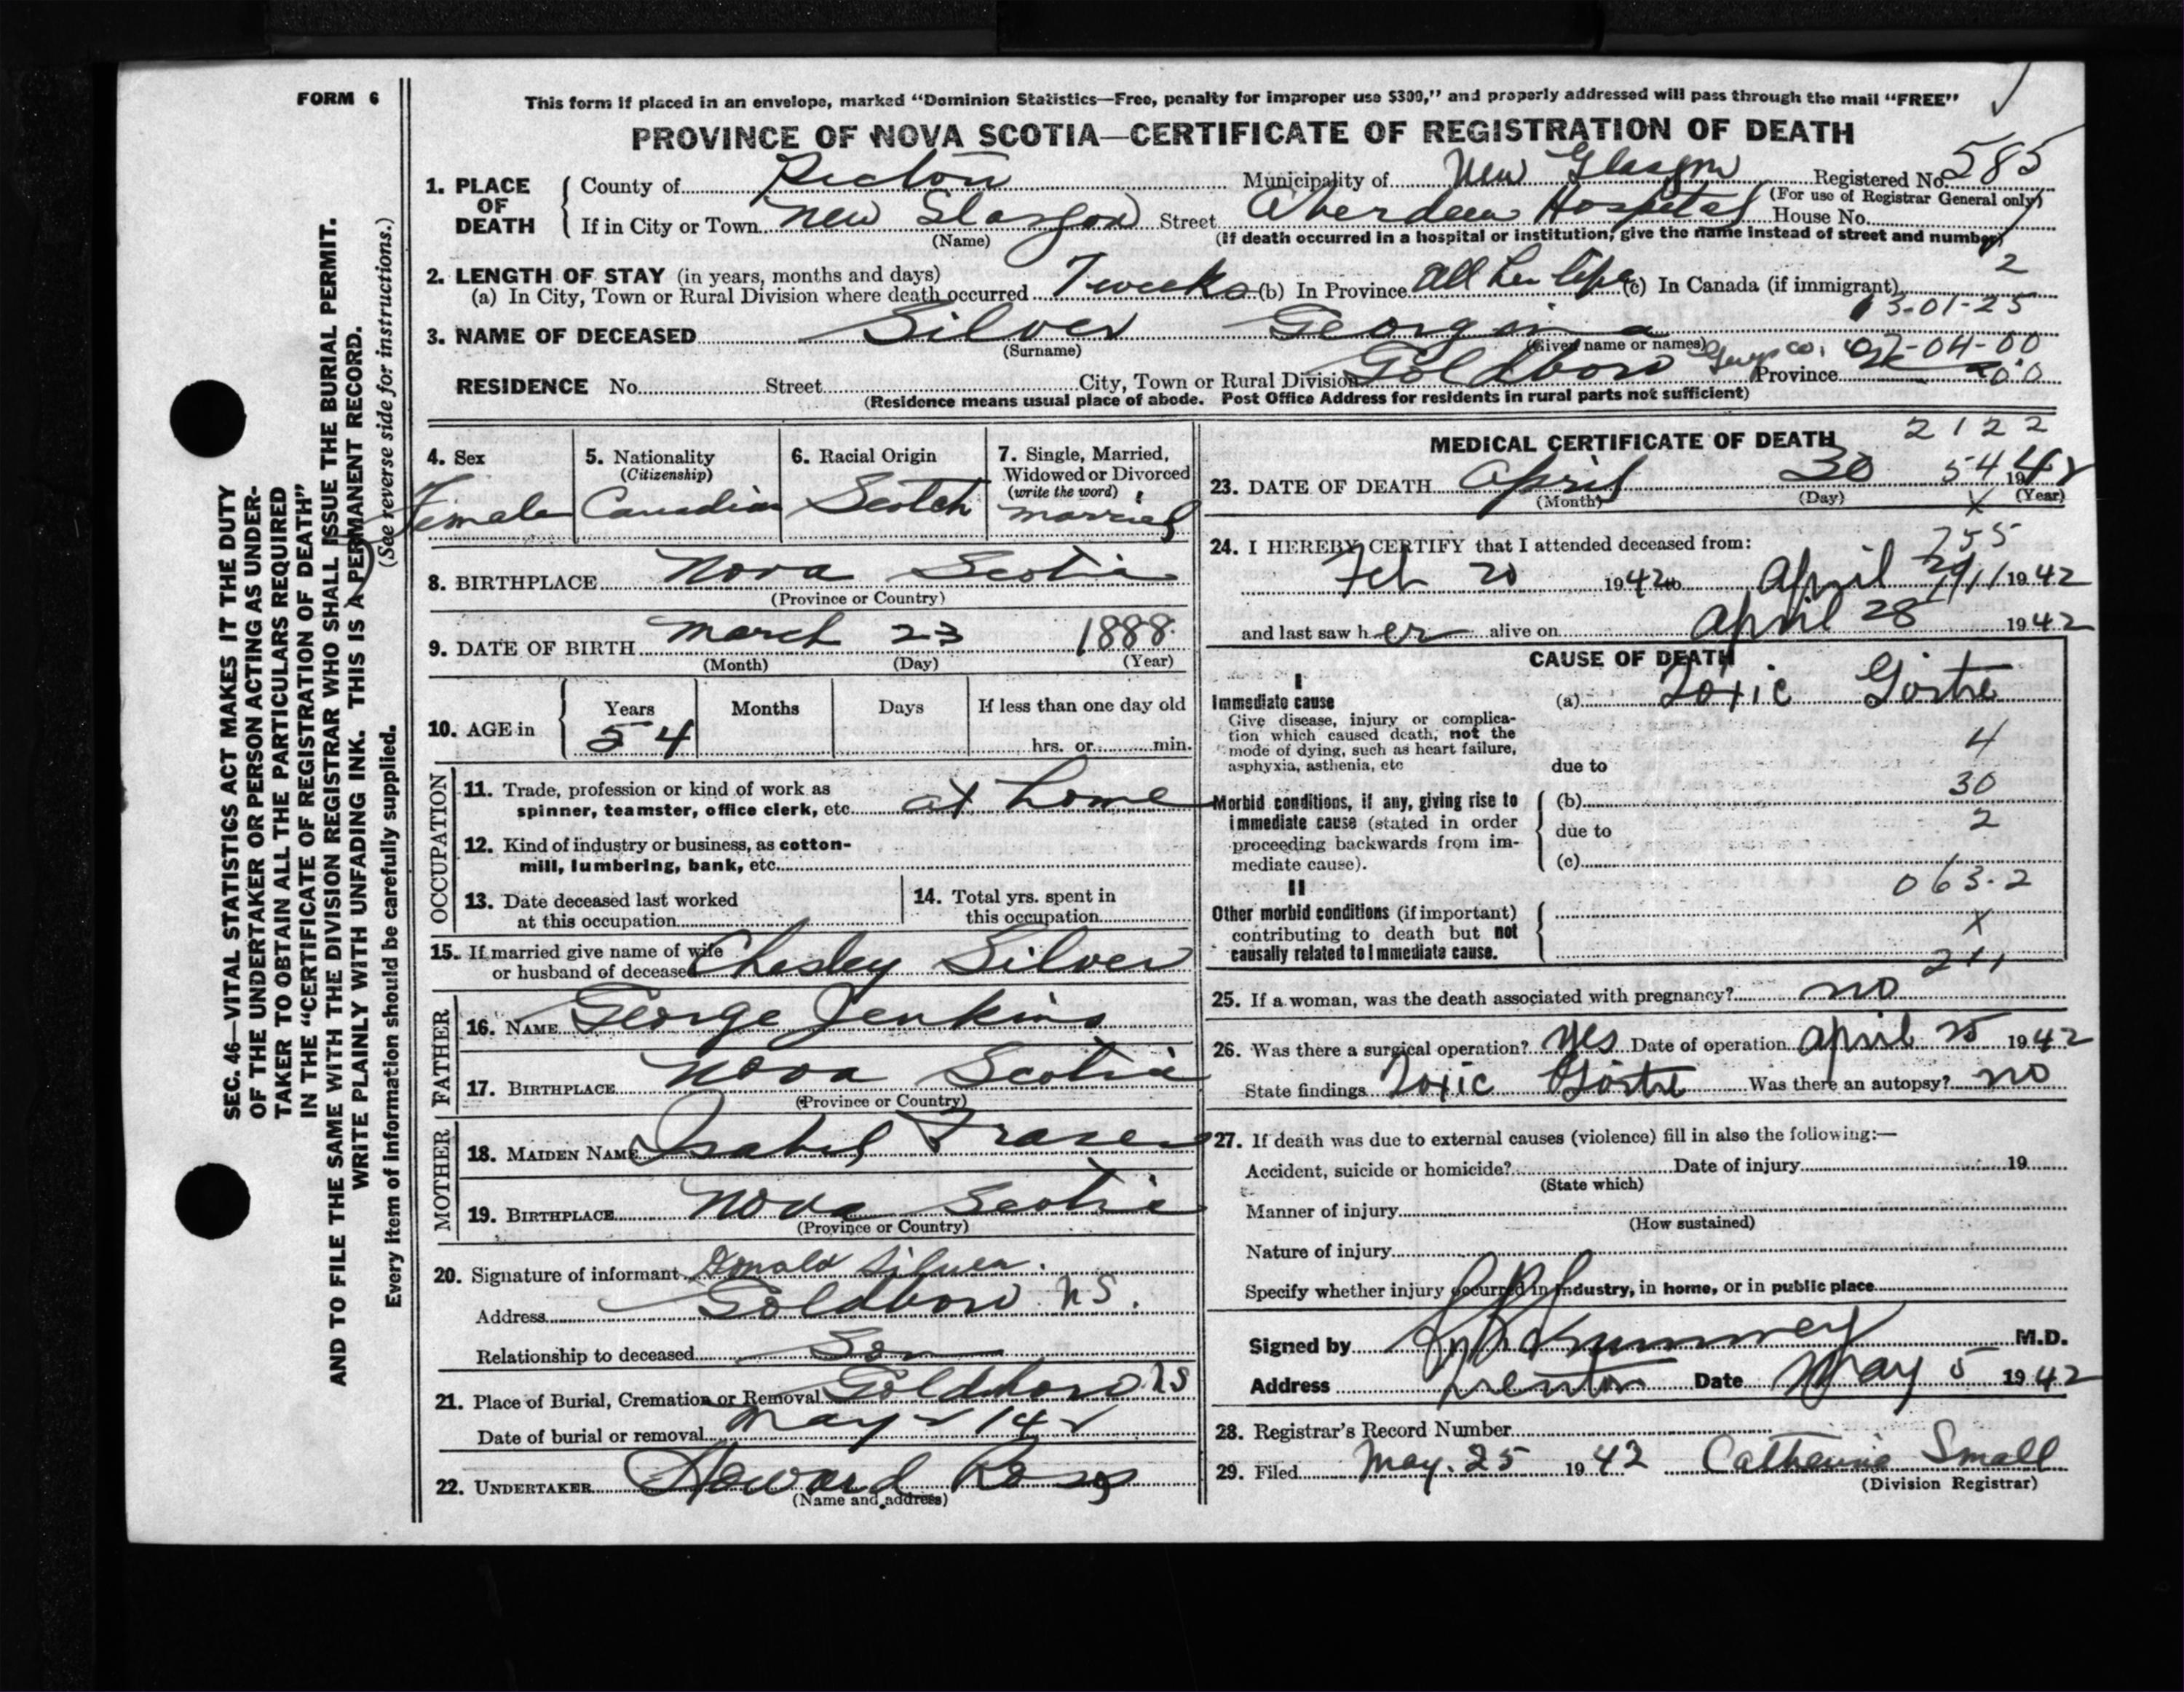 FORM 6
This form if placed in an envelope, marked "Dominion Statistics—Free, penalty for improper use $300," and properly addressed will pass through the mail "FREE"
PROVINCE OF NOVA SCOTIA—CERTIFICATE OF REGISTRATION OF DEATH
585
1. PLACE OF DEATH { County of Pictou Municipality of New Glasgow Registered No.
(For use of Registrar General only)
If in City or Town New Glasgow Street Aberdeen Hospital House No.
(Name) (If death occurred in a hospital or institution, give the name instead of street and number)
2. LENGTH OF STAY (in years, months and days) 2
(a) In City, Town or Rural Division where death occurred 7 weeks (b) In Province All her life (c) In Canada (if immigrant)
13-01-25
3. NAME OF DECEASED Silver Georgina
(Surname) (Given name or names) 07-04-00
RESIDENCE No. Street City, Town or Rural Division Goldboro Guys Co. Province 00
(Residence means usual place of abode. Post Office Address for residents in rural parts not sufficient)
4. Sex 5. Nationality (Citizenship) 6. Racial Origin 7. Single, Married, Widowed or Divorced (write the word)
Female Canadian Scotch married
8. BIRTHPLACE Nova Scotia
(Province or Country)
9. DATE OF BIRTH March 23 1888
(Month) (Day) (Year)
10. AGE in Years Months Days If less than one day old
54 hrs. or min.
OCCUPATION
11. Trade, profession or kind of work as spinner, teamster, office clerk, etc. at home
12. Kind of industry or business, as cotton-mill, lumbering, bank, etc.
13. Date deceased last worked at this occupation
14. Total yrs. spent in this occupation
15. If married give name of wife or husband of deceased Chesley Silver
FATHER
16. NAME George Jenkins
17. BIRTHPLACE Nova Scotia
(Province or Country)
MOTHER
18. MAIDEN NAME Isabel Fraser
19. BIRTHPLACE Nova Scotia
(Province or Country)
20. Signature of informant Donald Silver.
Address Goldboro N.S.
Relationship to deceased Son
21. Place of Burial, Cremation or Removal Goldboro NS
Date of burial or removal May 2
22. UNDERTAKER Howard Ross
(Name and address)
MEDICAL CERTIFICATE OF DEATH 2122
54
23. DATE OF DEATH April 30 1942
(Month) (Day) (Year)
X
24. I HEREBY CERTIFY that I attended deceased from: 755
Feb 20 1942 to April 1942
and last saw her alive on April 28 1942
CAUSE OF DEATH
I
Immediate cause (a) Toxic Goitre
Give disease, injury or complication which caused death, not the mode of dying, such as heart failure, asphyxia, asthenia, etc
4
due to
30
Morbid conditions, if any, giving rise to immediate cause (stated in order proceeding backwards from immediate cause).
(b)
2
due to
(c)
063-2
II
Other morbid conditions (if important) contributing to death but not causally related to immediate cause.
X
25. If a woman, was the death associated with pregnancy? no
26. Was there a surgical operation? yes Date of operation April 25 1942
State findings Toxic Goitre Was there an autopsy? no
27. If death was due to external causes (violence) fill in also the following:—
Accident, suicide or homicide? Date of injury 19
(State which)
Manner of injury
(How sustained)
Nature of injury
Specify whether injury occurred in industry, in home, or in public place
Signed by M.D.
Address Trenton Date May 5 1942
28. Registrar's Record Number
29. Filed May. 25 1942 Catherine Small
(Division Registrar)
SEC. 46—VITAL STATISTICS ACT MAKES IT THE DUTY
OF THE UNDERTAKER OR PERSON ACTING AS UNDER-
TAKER TO OBTAIN ALL THE PARTICULARS REQUIRED
IN THE "CERTIFICATE OF REGISTRATION OF DEATH"
AND TO FILE THE SAME WITH THE DIVISION REGISTRAR WHO SHALL ISSUE THE BURIAL PERMIT.
WRITE PLAINLY WITH UNFADING INK. THIS IS A PERMANENT RECORD.
(See reverse side for instructions.)
Every item of information should be carefully supplied.